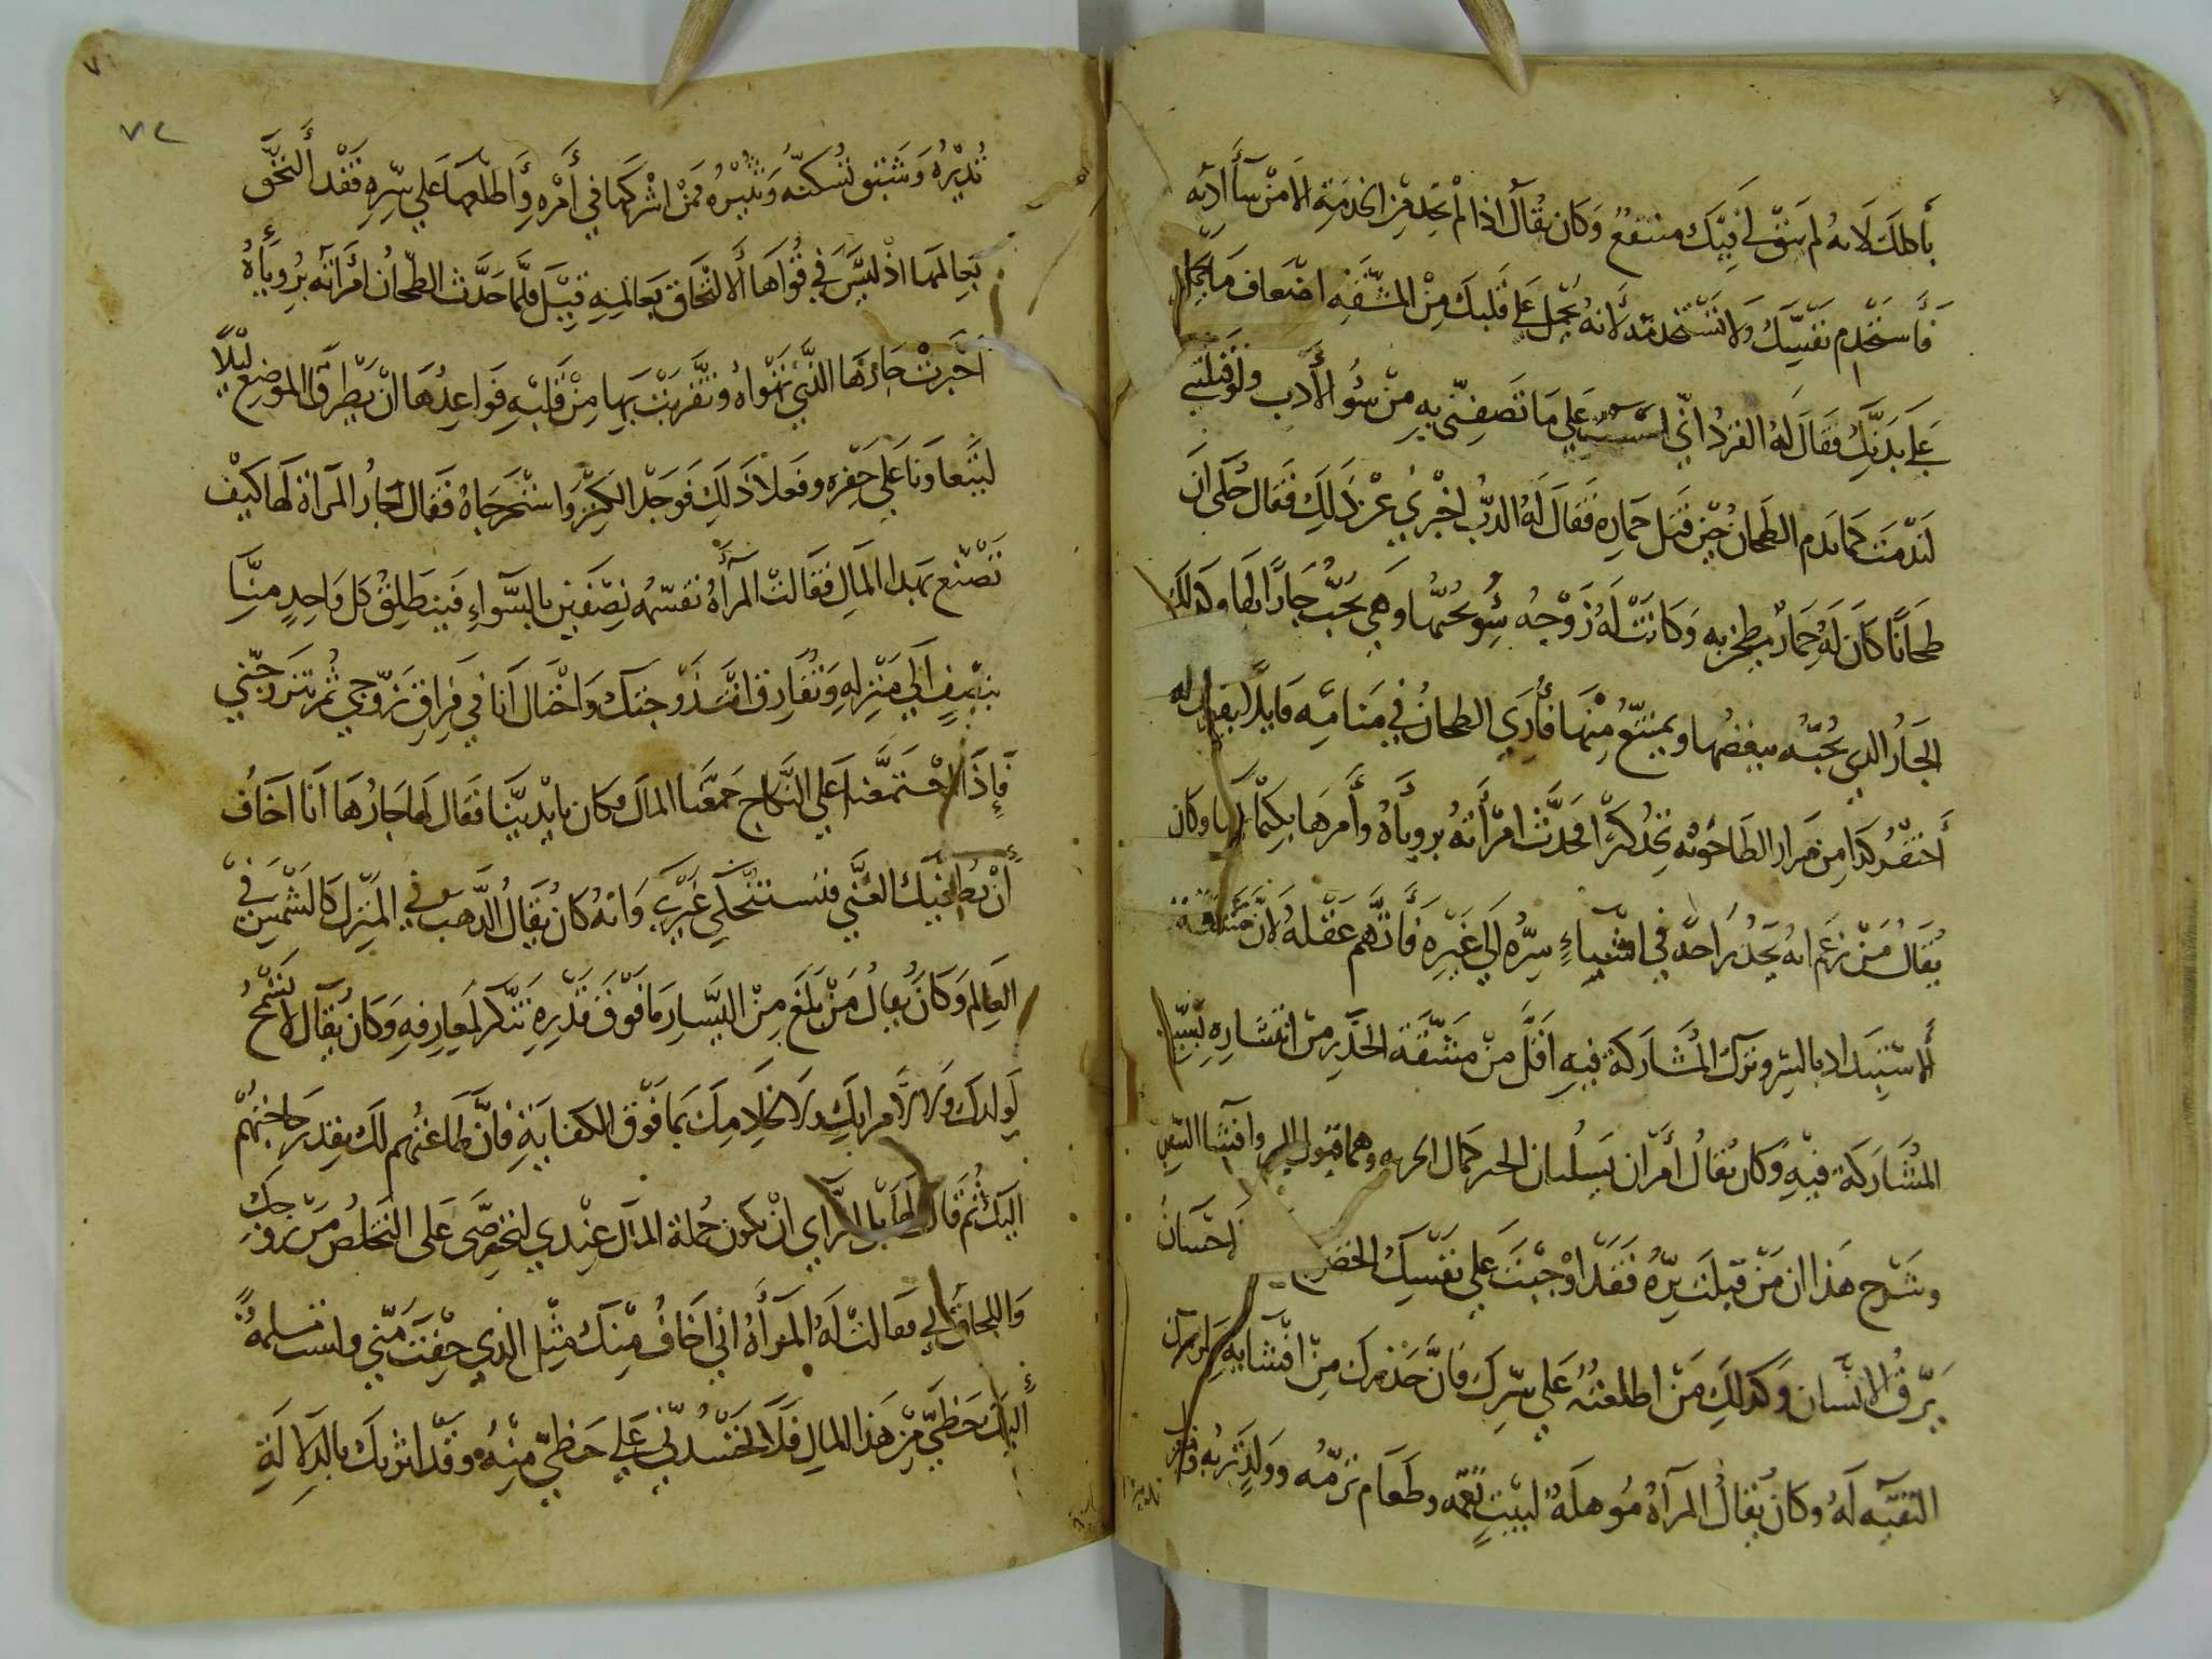 باطلك لانه لم يبق لي فيك منتفع وكان يقال اذا لم تجد من الخدمة الا من سآ أدبه
فاستخدم نفسك ولا تستخدمه لانه يحمل على قلبك من المشقه اضعاف ما
على بدنك فقال له القرد اني على ما تصفني به من سوء الأدب ولو قتلتني
لندمت كما ندم الطحان حين قتل حماره فقال له الدب اخبرني عن ذلك فقال حكى ان
طحانا كان له حمار يطحن به وكانت له زوجه سوء يحبها وهي تحب جارا لها وكذلك
الجار الذي تحبه يبغضها ويمتنع منها فأري الطحان في منامه قايلا يقول له
أحتفر كذا من مدار الطاحونه تجد كنزا فحدث امرأته بروياه وأمرها بكتمانها وكان
يقال من زعم انه يجد راحة في افشاء سره الى غيره فأتهم عقله لان مشقة
ألاستبداد بالسر وترك المشاركة فيه اقل من مشقة الحذر من انتشاره بسبب
المشاركة فيه وكان يقال أمران يسلبان الحر كمال الحريه وهما قبول البر وافشا السر
وشرح هذا ان من قبلت بره فقد اوجبت على نفسك الخضوع احسان
يرق الانسان وكذلك من اطلعته على سرك فان حذرك من افشايه
التقيه له وكان يقال المرأة موهلة لبيت تقمه وطعام ترمه وولد تربه
تديره وشبق تسكنه وتثيره فمن اشركها في أمره وأطلعها على سره فقد ألتحق
بعالمها اذ ليس في قواها ألالتحاق بعالمه قيل فلما حدث الطحان امرأته بروياه
اخبرت جارها الذي تهواه وتقربت بها من قلبه فواعدها ان يطرقا الموضع ليلا
ليتعاونا على حفره وفعلا ذلك فوجدا الكنز واستخرجاه فقال الجار للمرأة لها كيف
تصنع بهذا المال فقالت المرأة نقسمه نصفين بالسواء فينطلق كل واحد منا
بنصف الى منزله وتفارق انت زوجتك واحتال أنا في فراق زوجي ثم تتزوجني
فإذا اجتمعنا على النكاح جمعنا المال وكان بايدينا فقال لها جارها انا اخاف
أن يطغيك الغني فتستنكحي غيري وانه كان يقال الذهب في المنزل كالشمس في
العالم وكان يقال من بلغ من اليسار ما فوق قدره تنكر لمعارفه وكان يقال لا تسمح
لولدك ولا لامرأتك ولا لخادمك بما فوق الكفاية فان طاعتهم لك بقدر حاجتهم
اليك ثم قال لها بل الرأي ان يكون جملة المال عندي لتحرصي على التخلص من زوجك
واللحاق بي فقالت له المرأة اني اخاف منك مثل الذي خفت مني ولست مسلمة
أليك حظي من هذا المال فلا تحسدني على حظي منه وقد اثرتك بالدلالة